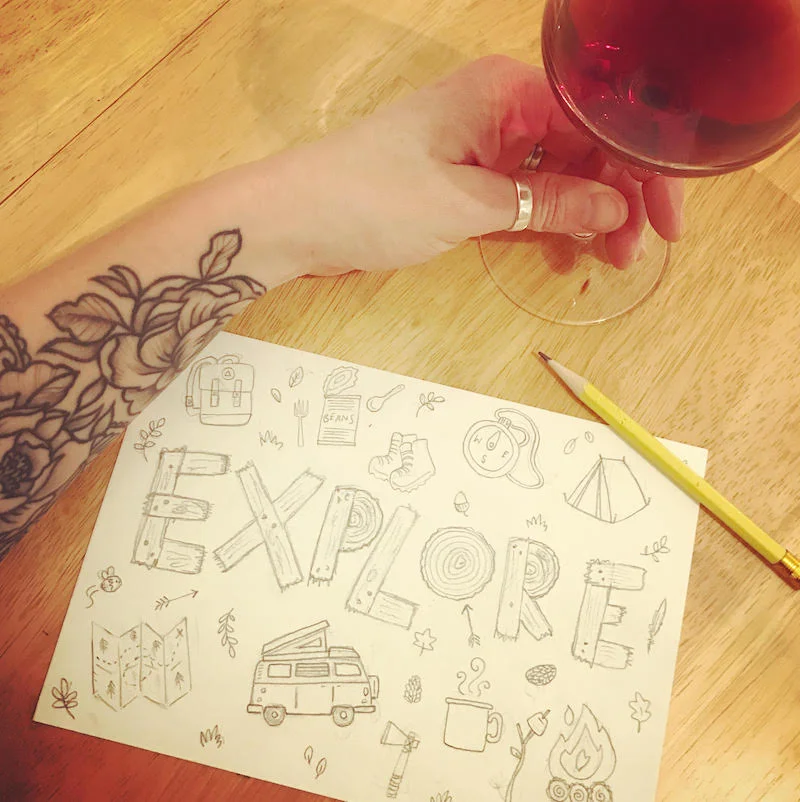 BEANS
W
S
E
EXPLORE